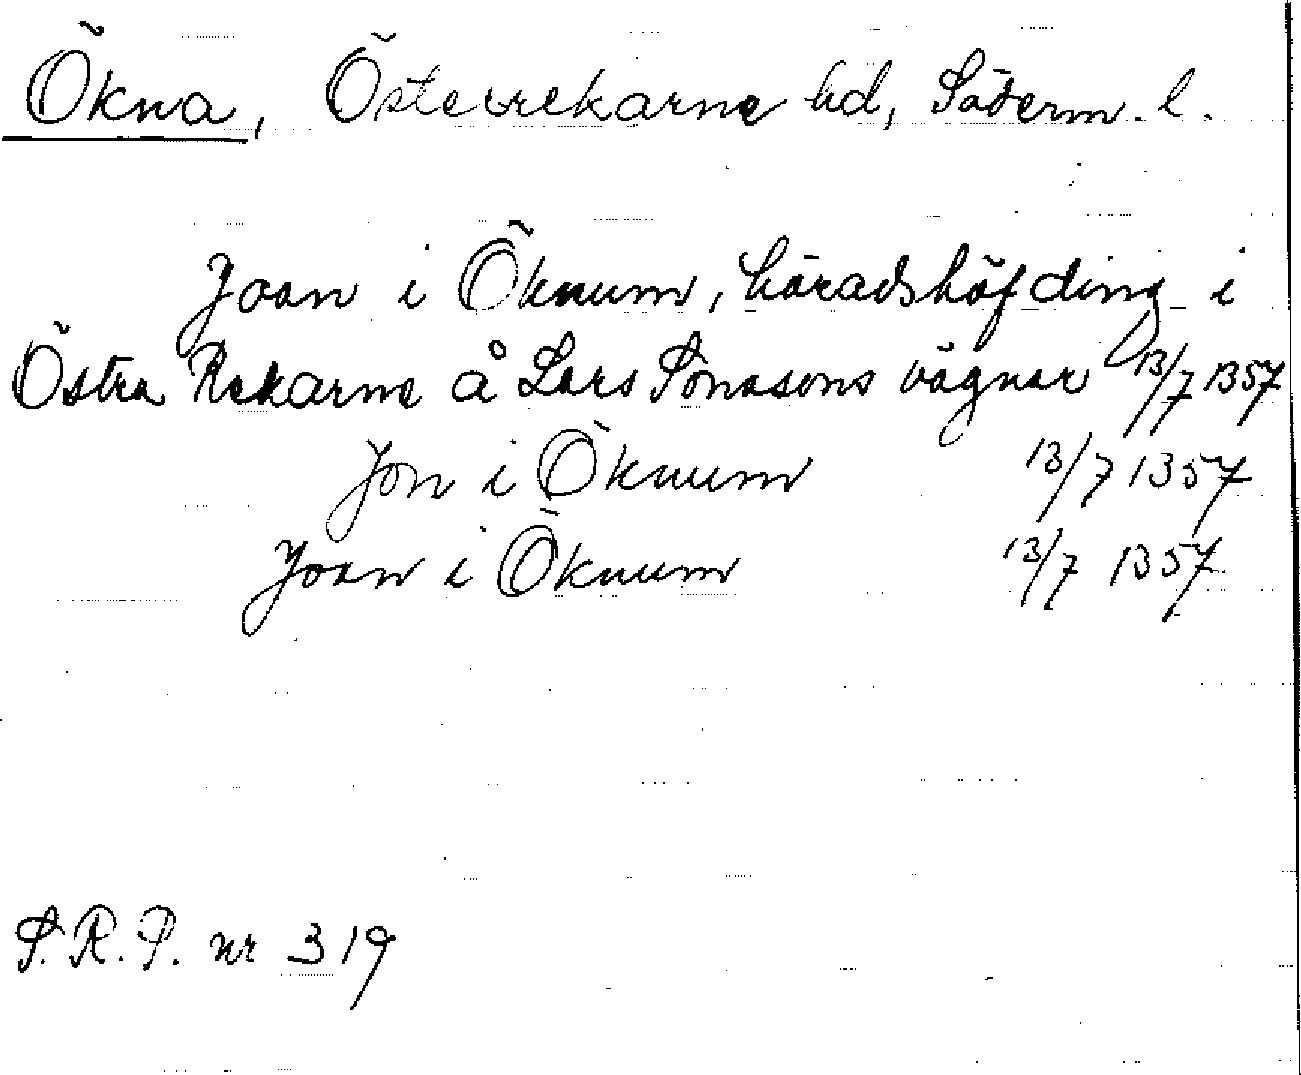 Ökna, Österrekarne hd, Söderm. l.
Joan i Öknum, häradshöfding i
Östra Rekarne å Lars Sonasons vägnar 13/7 1357
Jon i Öknum 13/7 1357
Joan i Öknum 13/7 1357
S.R.P. nr 319